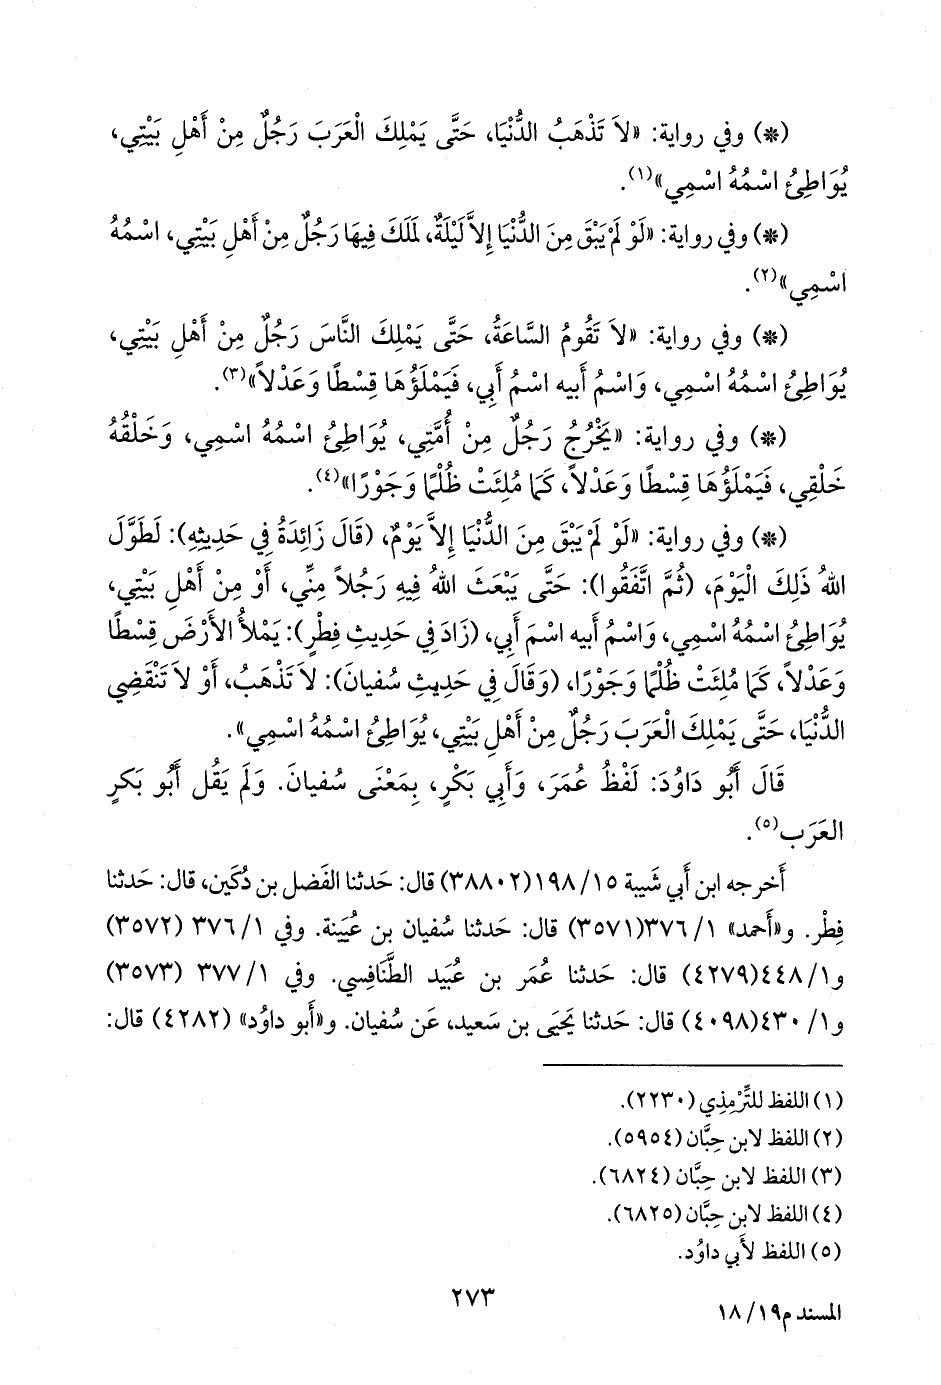 (*) وفي رواية: «لاَ تَذْهَبُ الدُّنْيَا، حَتَّى يَمْلِكَ الْعَرَبَ رَجُلٌ مِنْ أَهْلِ بَيْتِي،
يُوَاطِئُ اسْمُهُ اسْمِي»(١).
(*) وفي رواية: «لَوْ لَمْ يَبْقَ مِنَ الدُّنْيَا إِلاَّ لَيْلَةٌ، لَمَلَكَ فِيهَا رَجُلٌ مِنْ أَهْلِ بَيْتِي، اسْمُهُ
اسْمِي»(٢).
(*) وفي رواية: «لاَ تَقُومُ السَّاعَةُ، حَتَّى يَمْلِكَ النَّاسَ رَجُلٌ مِنْ أَهْلِ بَيْتِي،
يُوَاطِئُ اسْمُهُ اسْمِي، وَاسْمُ أَبيه اسْمُ أَبِي، فَيَمْلَؤُهَا قِسْطًا وَعَدْلاً»(٣).
(*) وفي رواية: «يَخْرُجُ رَجُلٌ مِنْ أُمَّتِي، يُوَاطِئُ اسْمُهُ اسْمِي، وَخَلْقُهُ
خَلْقِي، فَيَمْلَؤُهَا قِسْطًا وَعَدْلاً، كَمَا مُلِئَتْ ظُلْمًا وَجَوْرًا»(٤).
(*) وفي رواية: «لَوْ لَمْ يَبْقَ مِنَ الدُّنْيَا إِلاَّ يَوْمٌ، (قَالَ زَائِدَةُ فِي حَدِيثِهِ): لَطَوَّلَ
اللهُ ذَلِكَ الْيَوْمَ، (ثُمَّ اتَّفَقُوا): حَتَّى يَبْعَثَ اللهُ فِيهِ رَجُلاً مِنِّي، أَوْ مِنْ أَهْلِ بَيْتِي،
يُوَاطِئُ اسْمُهُ اسْمِي، وَاسْمُ أَبيه اسْمَ أَبِي، (زَادَ فِي حَدِيثِ فِطْرٍ): يَمْلأُ الأَرْضَ قِسْطًا
وَعَدْلاً، كَمَا مُلِئَتْ ظُلْمًا وَجَوْرًا، (وَقَالَ فِي حَدِيثِ سُفيانَ): لاَ تَذْهَبُ، أَوْ لاَ تَنْقَضِي
الدُّنْيَا، حَتَّى يَمْلِكَ الْعَرَبَ رَجُلٌ مِنْ أَهْلِ بَيْتِي، يُوَاطِئُ اسْمُهُ اسْمِي».
قَالَ أَبُو دَاوُدَ: لَفْظُ عُمَرَ، وَأَبِي بَكْرٍ، بِمَعْنَى سُفيانَ. وَلَم يَقُل أَبُو بَكرٍ
العَرَب(٥).
أَخرجه ابن أبي شَيبة ١٥/ ١٩٨(٣٨٨٠٢) قال: حَدثنا الفَضل بن دُكَين، قال: حَدثنا
فِطْر. و«أَحمد» ١/ ٣٧٦(٣٥٧١) قال: حَدثنا سُفيان بن عُيَينة. وفي ١/ ٣٧٦ (٣٥٧٢)
و١/ ٤٤٨(٤٢٧٩) قال: حَدثنا عُمَر بن عُبَيد الطَّنَافِسي. وفي ١/ ٣٧٧ (٣٥٧٣)
و١/ ٤٣٠(٤٠٩٨) قال: حَدثنا يَحيَى بن سَعيد، عَن سُفيان. و«أَبو داوُد» (٤٢٨٢) قال:
(١) اللفظ للتِّرْمِذِي (٢٢٣٠).
(٢) اللفظ لابن حِبَّان (٥٩٥٤).
(٣) اللفظ لابن حِبَّان (٦٨٢٤).
(٤) اللفظ لابن حِبَّان (٦٨٢٥).
(٥) اللفظ لأَبي داوُد.
٢٧٣
المسند م١٩/ ١٨